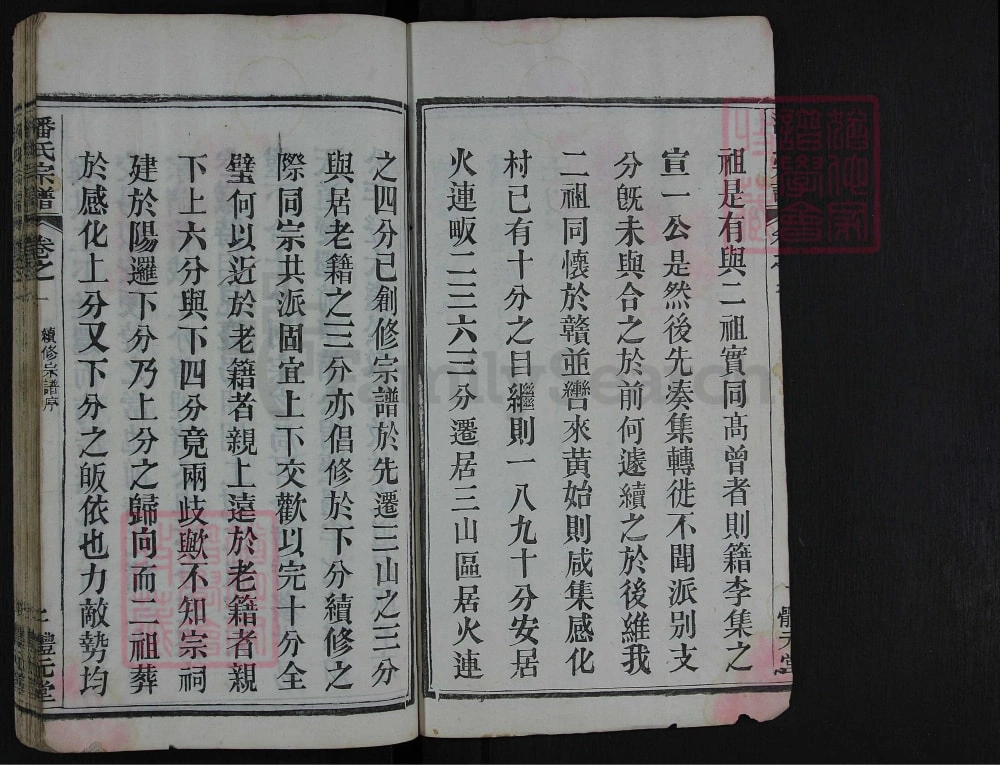 祖是有與二祖實同髙曾者則籍李集之
宣一公是然後先凑集轉徙不聞派別支
分旣未與合之於前何遽續之於後維我
二祖同懷於贛並轡來黄始則咸集感化
村已有十分之目繼則一八九十分安居
火連畈二三六三分遷居三山區居火連
之四分已創修宗譜於先遷三山之三分
與居老籍之三分亦倡修於下分續修之
際同宗共派固宜上下交歡以完十分全
璧何以近於老籍者親上遠於老籍者親
下上六分與下四分竟兩歧歟不知宗祠
建於陽邏下分乃上分之歸向而二祖葬
於感化上分又下分之皈依也力敵勢均
潘氏宗譜
卷之一
續修宗譜序
二
體元堂
體元堂
FamilySearch